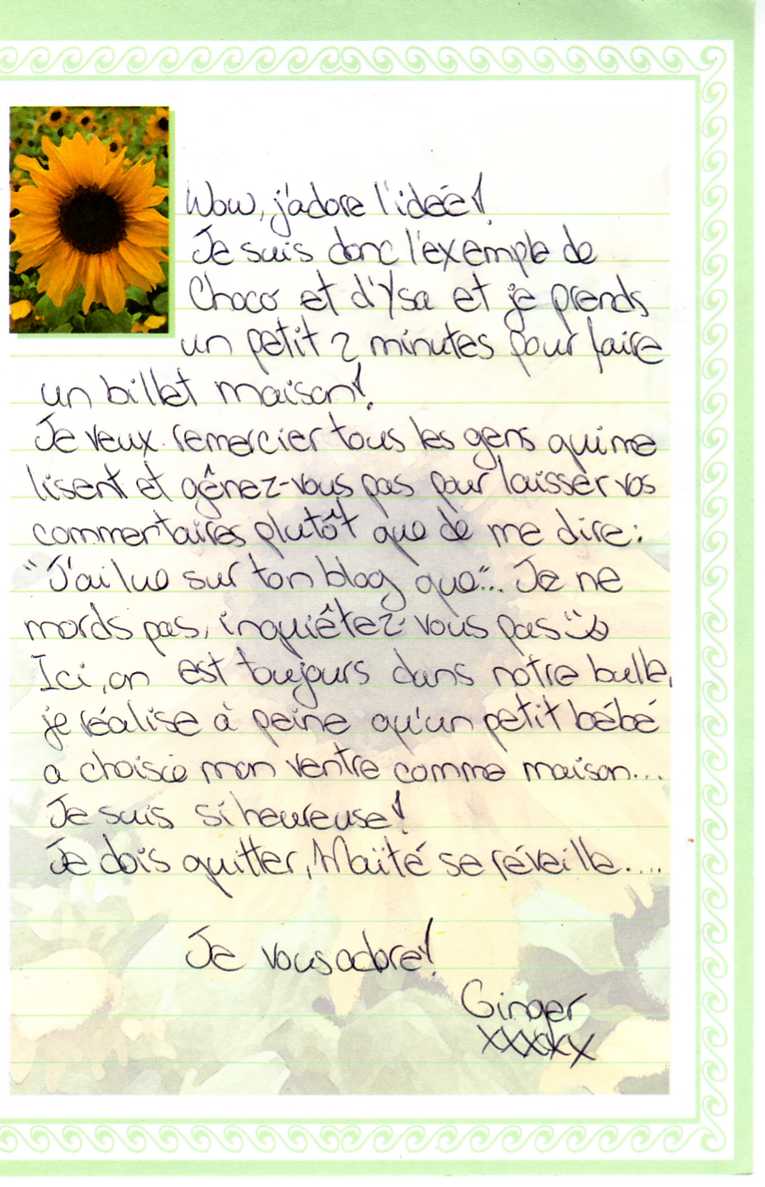 Wow, j'adore l'idée!
Je suis donc l'exemple de
Choco et d'Ysa et je prends
un petit 2 minutes pour faire
un billet maison!
Je veux remercier tous les gens qui me
lisent et gênez-vous pas pour laisser vos
commentaires plutôt que de me dire:
"J'ai lue sur ton blog que"... Je ne
mords pas, inquiétez-vous pas
Ici, on est toujours dans notre bulle,
je réalise à peine qu'un petit bébé
a choisie mon ventre comme maison...
Je suis si heureuse!
Je dois quitter, Maïté se réveille....
Je vous adore!
Ginger
xxxxx